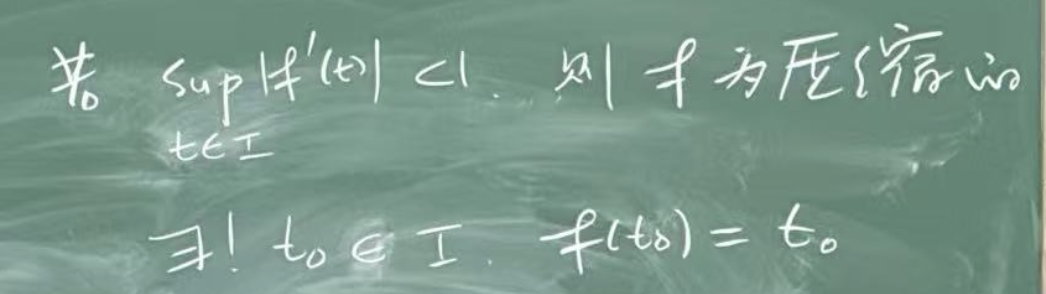 若 sup|f'(t)| <1. 则 f 为压缩的
t∈I
∃! t₀ ∈ I. f(t₀) = t₀